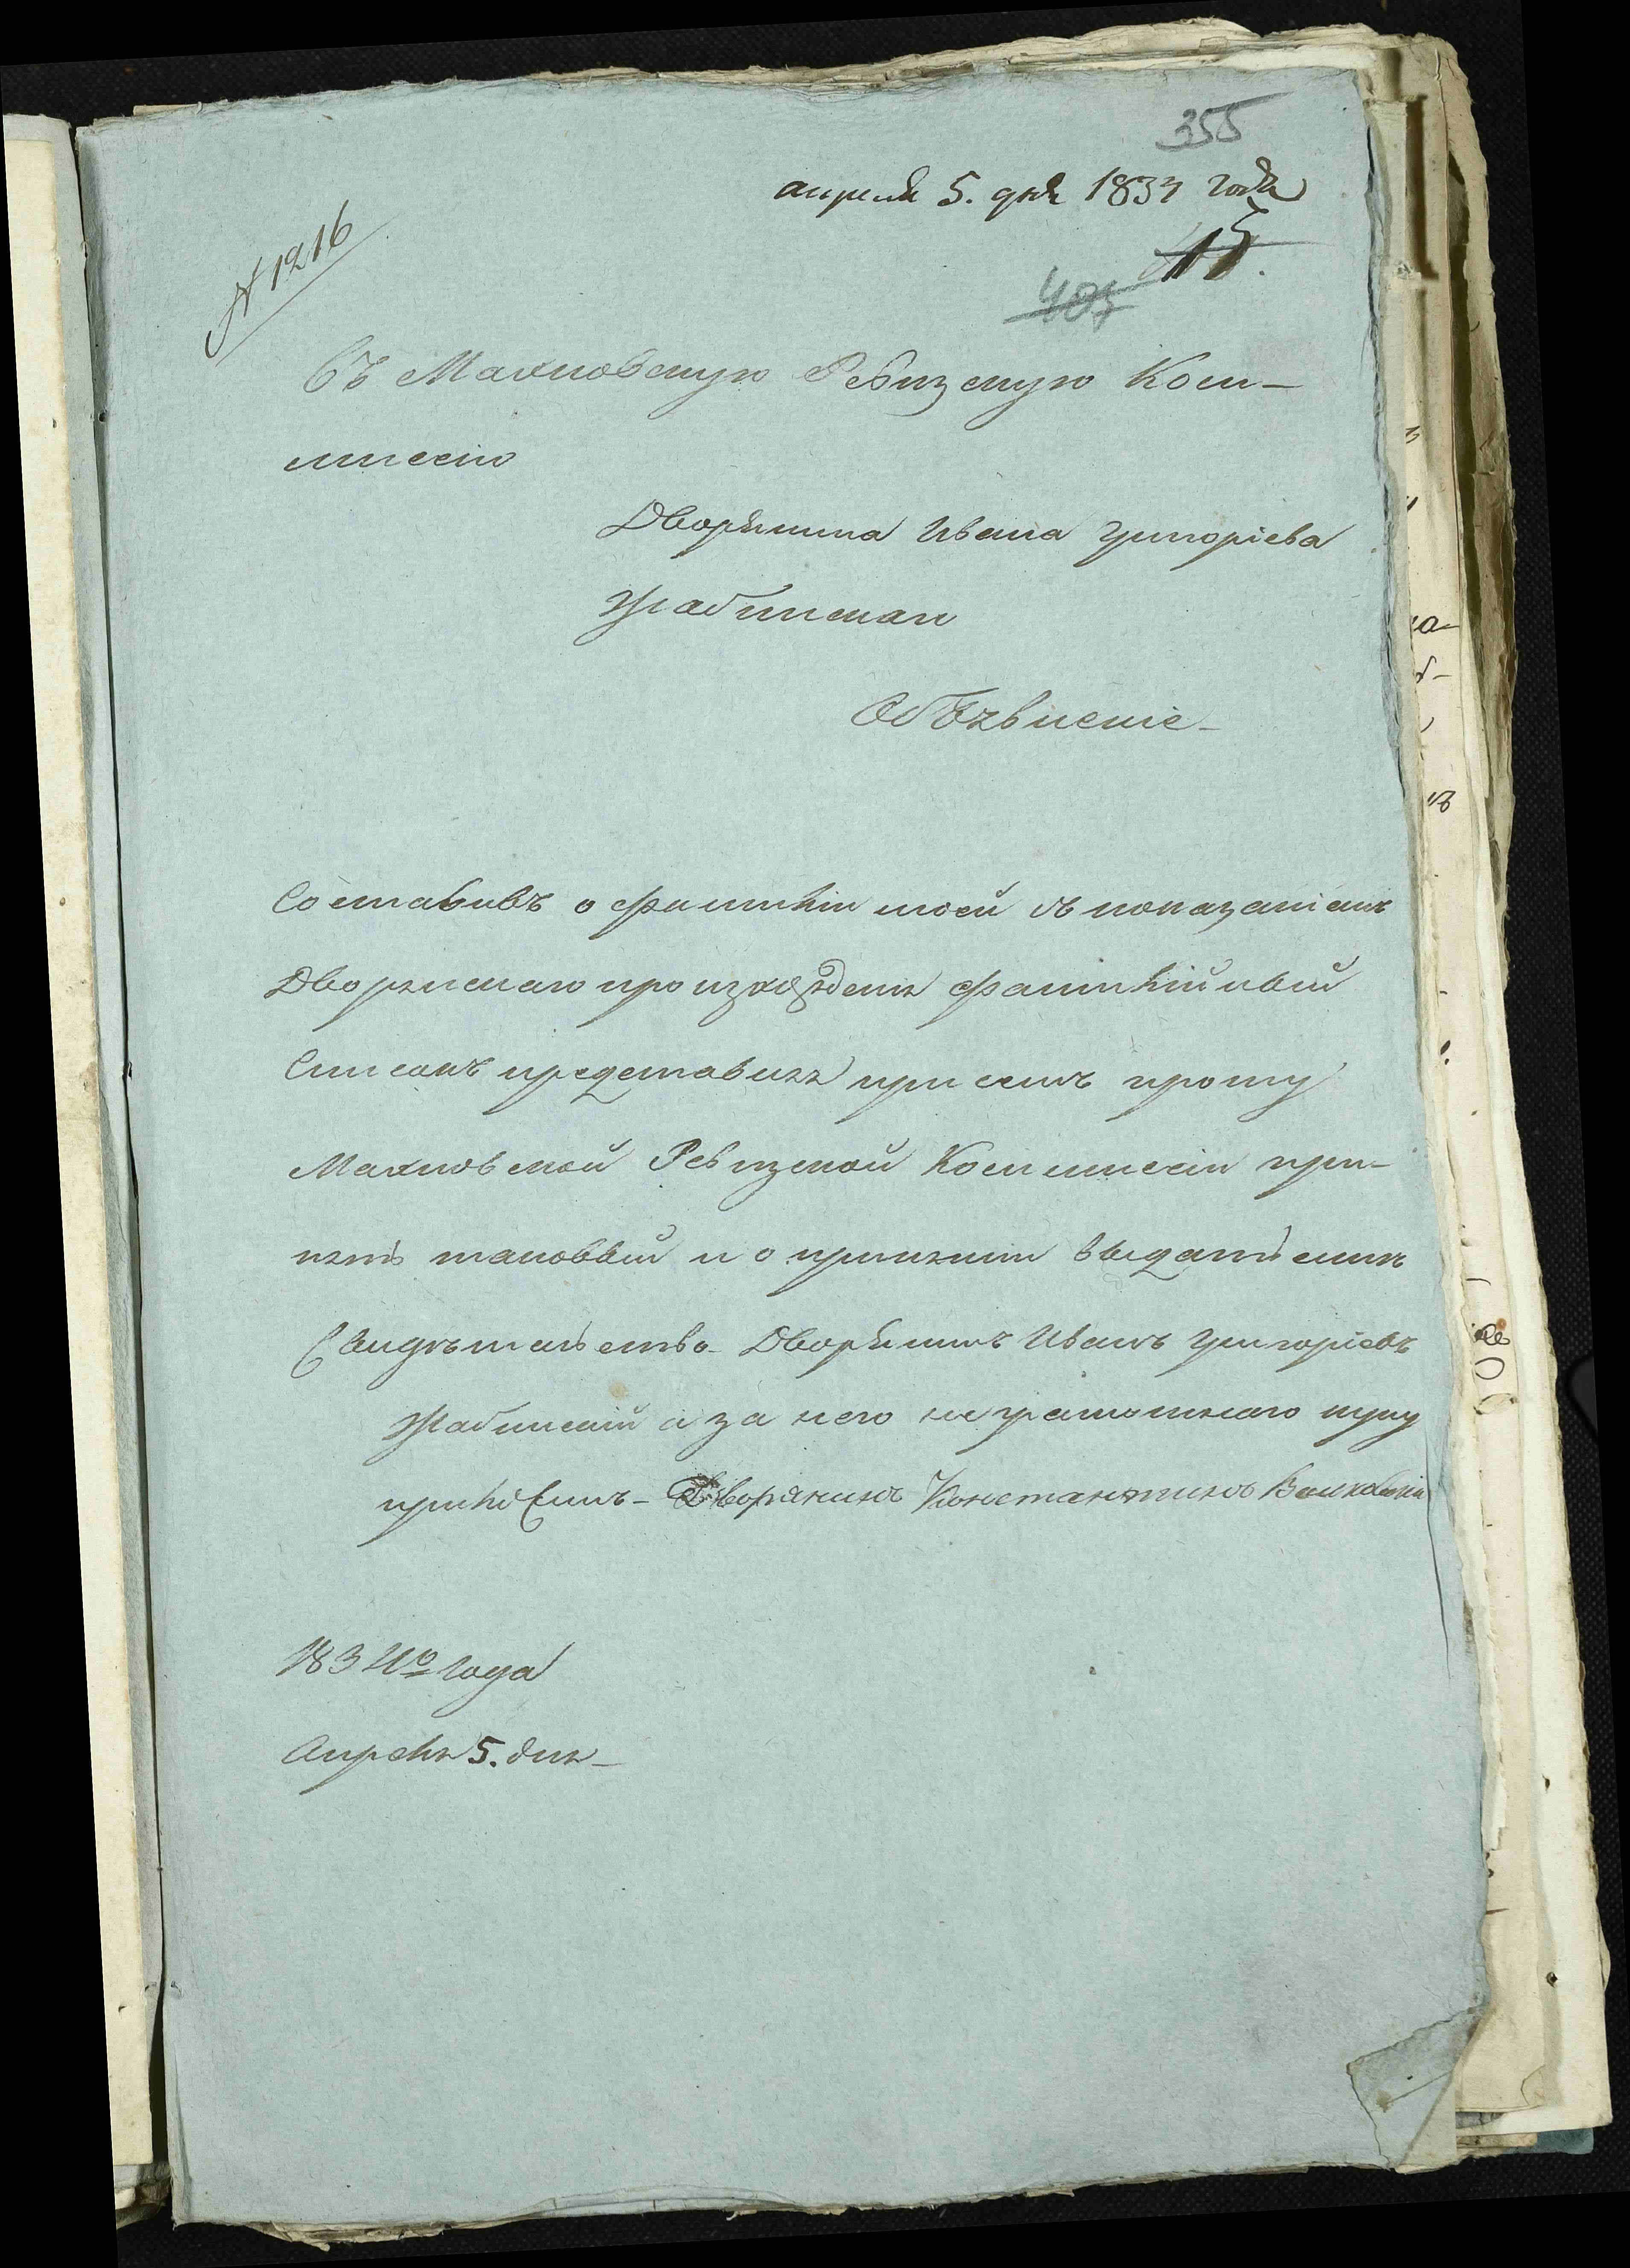 355
апреля 5. дня 1834 года
N 1216
415.
407
Въ Махновскую Ревизскую Ком-
миссію
Дворянина Ивана Григоріева
Жабинскаго
Объявленіе
Составивъ о фамиліи моей съ показаніемъ
Дворянскаго произхожденія фамилійный
Списокъ представляя при семъ прошу
Махновской Ревизской Коммиссіи при-
нять таковый и о принятіи выдать
Свидѣтельство Дворянинъ Иванъ Григоріевъ
Жабинскій а за него неграмотнаго руку
приложилъ - Дворянинъ Константинъ
1834го года
Апреля 5. дня